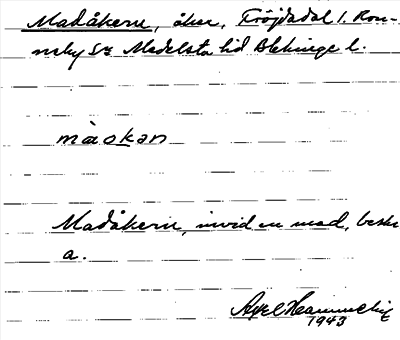 Madåkern, åker, Tröjdadal l. Ron-
neby sn Medelsta hd Blekinge l.
måokan
Madåkern, invid en mad, beskr
a.
Axel Hammelig
1943